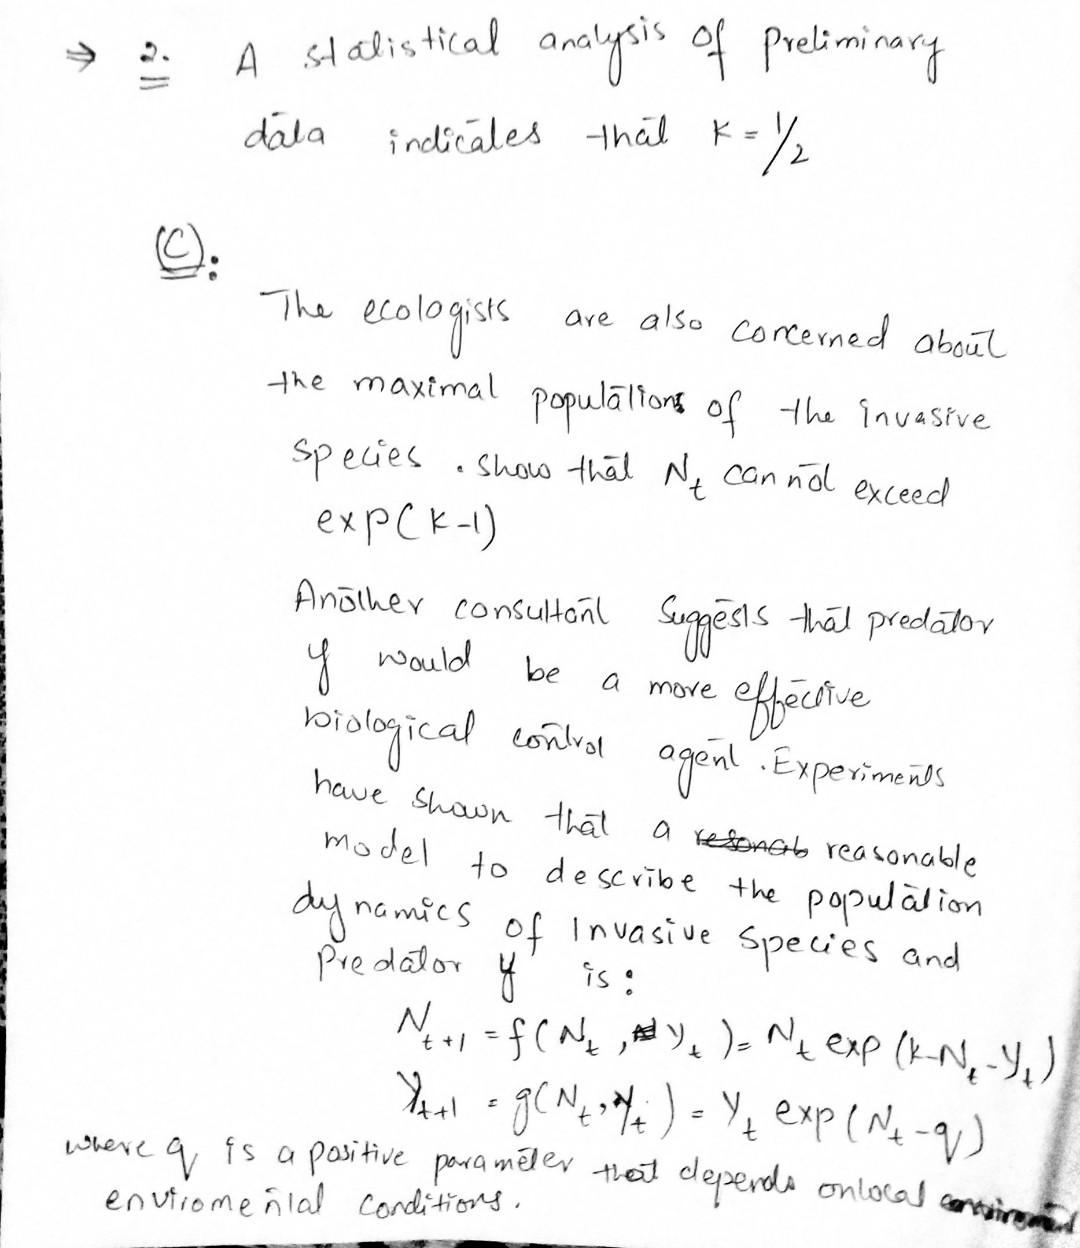 ⇒ 2. A statistical analysis of preliminary
data indicates that K = 1/2
(C):
The ecologists are also concerned about
the maximal populations of the invasive
species. Show that N_t cannot exceed
exp(K-1)
Another consultant suggests that predator
y would be a more effective
biological control agent. Experiments
have shown that a reasonable
model to describe the population
dynamics of Invasive species and
Predator y is:
N_{t+1} = f(N_t, y_t) = N_t exp(k-N_t-y_t)
Y_{t+1} = g(N_t, y_t) = Y_t exp(N_t-q)
where q is a positive parameter that depends on local
enviromental conditions.